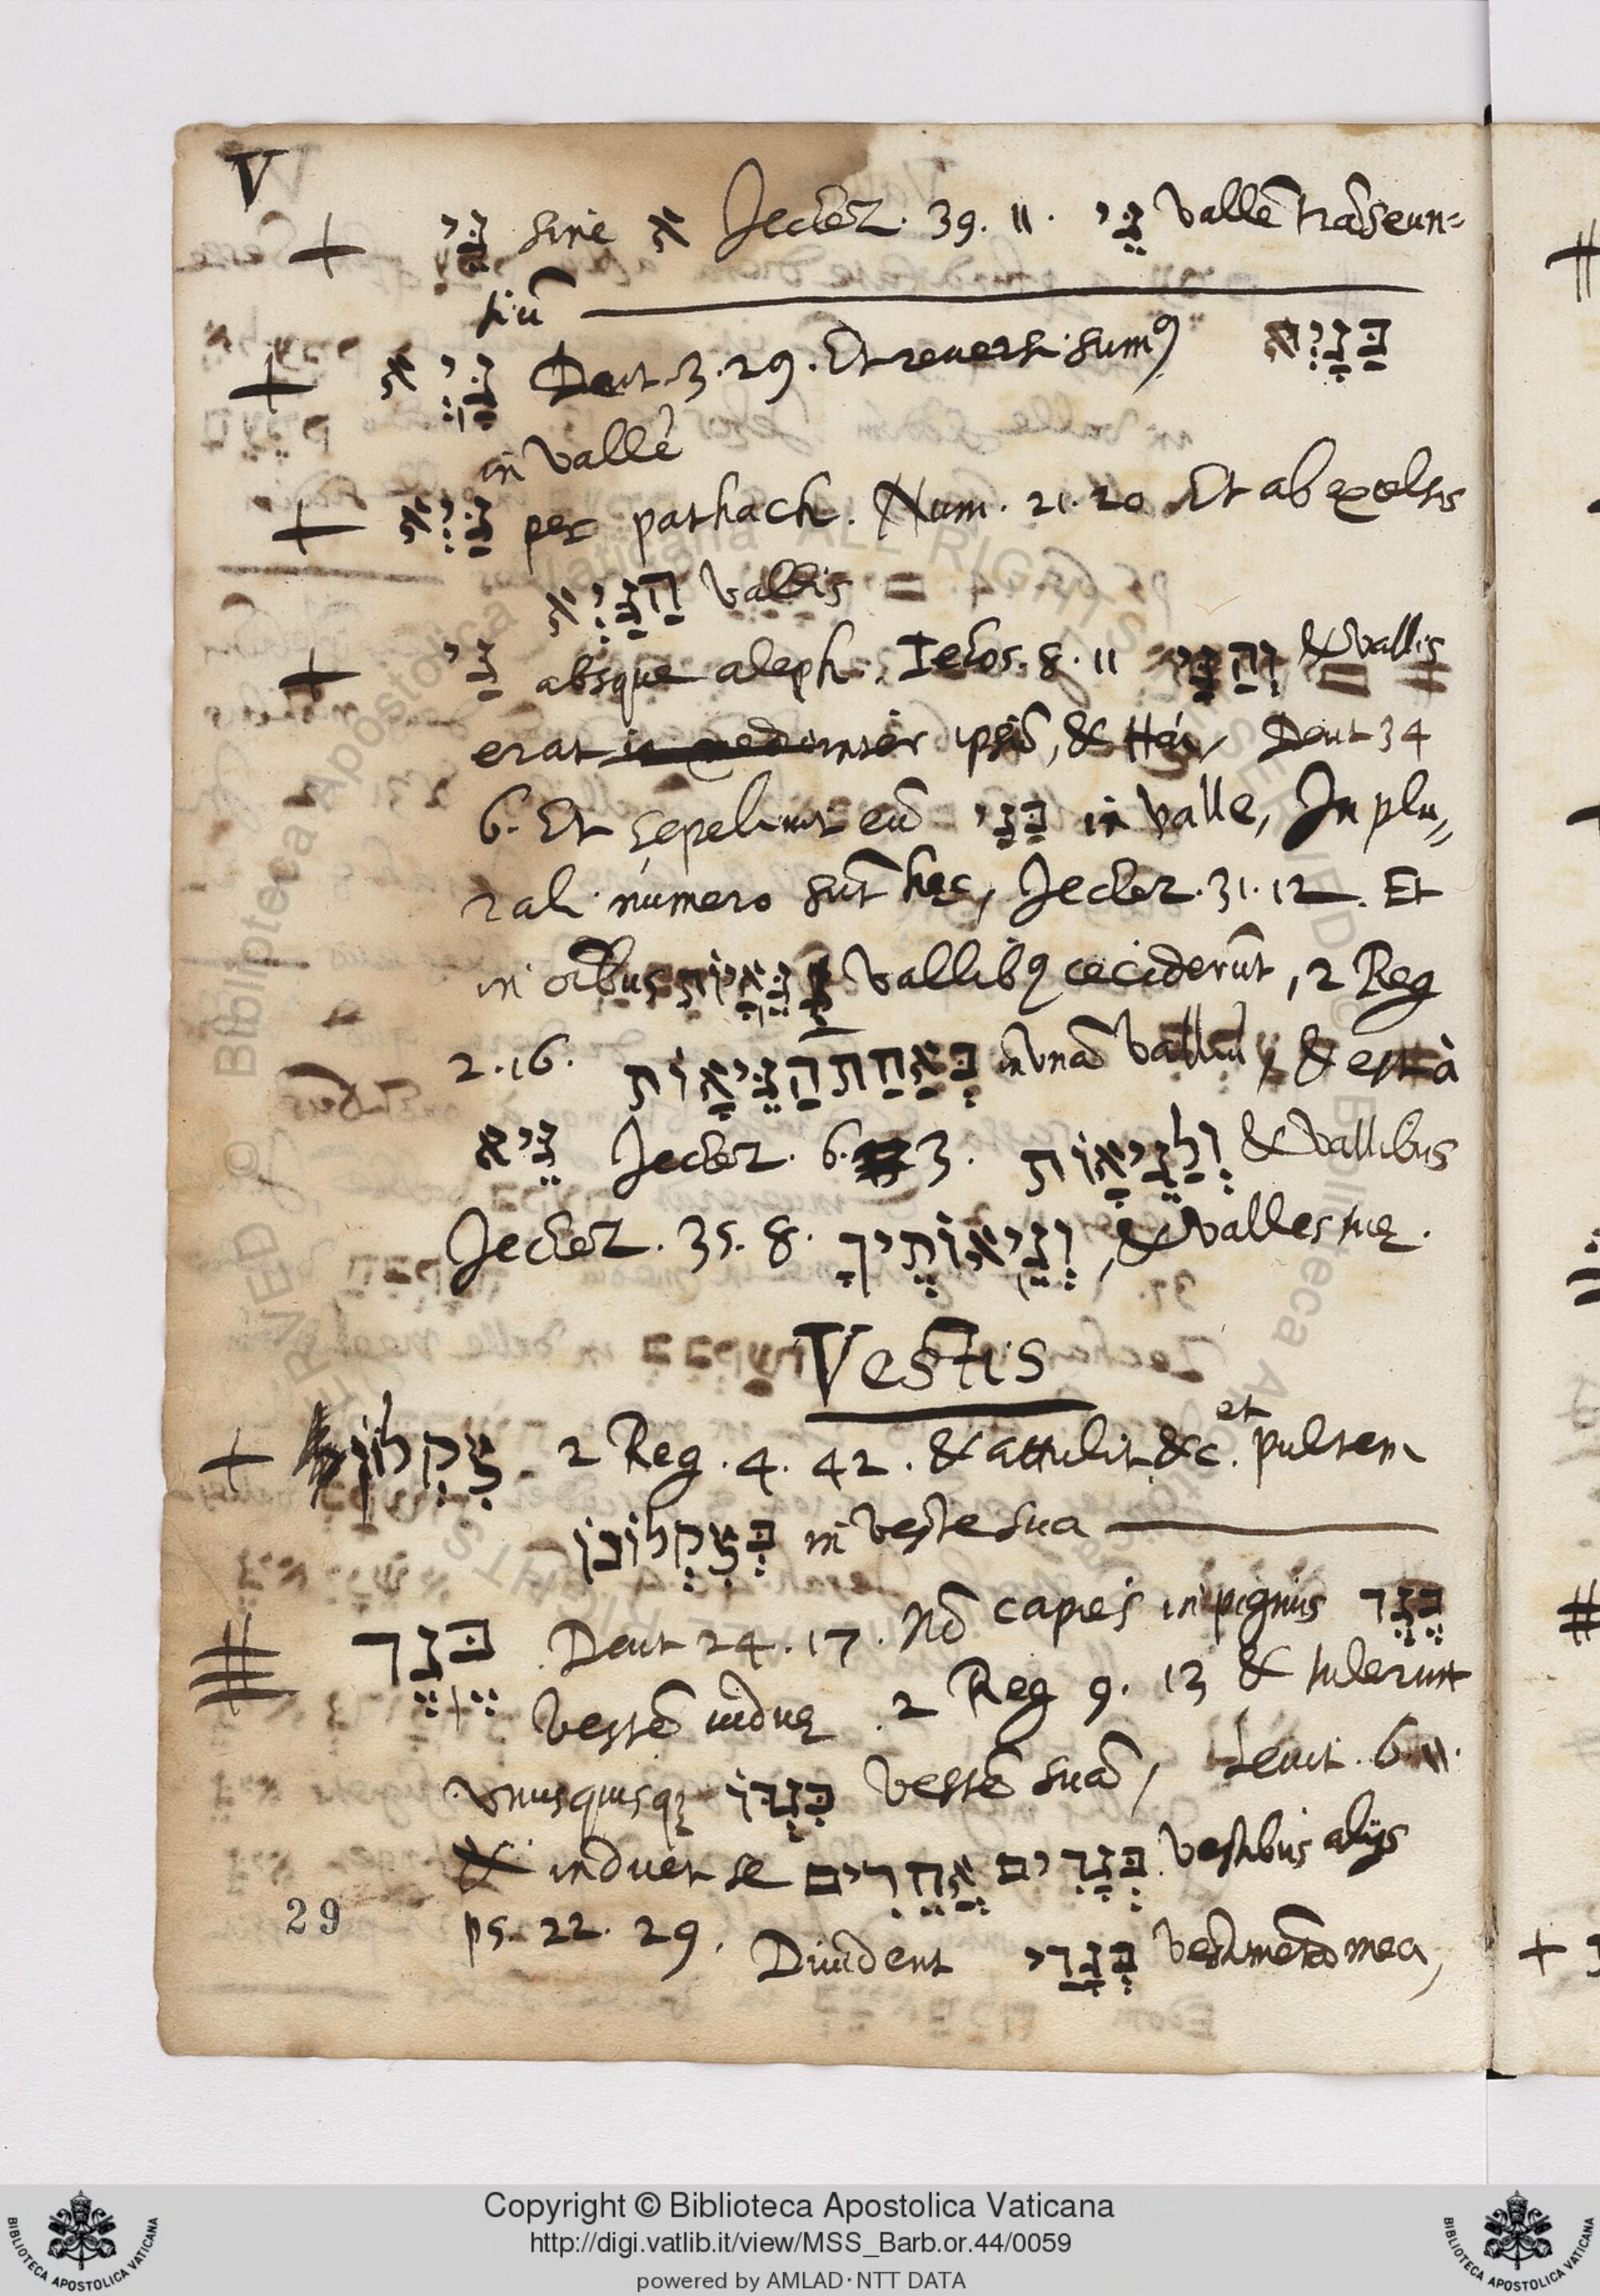 V
+ גֵּי sine א Jechez. 39. 11. גֵּי vallē trāseun=
tiū
+ גַּיְא Deut. 3. 29. Et reuersi sumꝰ בַּגָּיְא
in vallē
+ גַּיְא per pathach. Num. 21. 20 Et ab excelsis
הַגַּיְא vallis
+ גַּי absque aleph. Iehos. 8. 11 וְהַגַּי & vallis
erat inter ipsū, & Hái, Deut 34
6. Et sepeliuit eū בַּגַּי in valle, In plu=
rali numero sūt hęc, Jechez. 31. 12. Et
in oībus גֵּאָיוֹת vallibꝰ ceciderūt, 2 Reg
2. 16. בְּאַחַת הַגֵּיאָוֹת in vnā valliū, & est à
גֵּיא Jechez. 6. 3. וְלַגֵּיאָוֹת & vallibus
Jechez. 35. 8. וְגֵיאוֹתֶיךָ, & valles tuę.
Vestis
+ צִקְלוֹן 2 Reg. 4. 42. & attulit &c. et pultem
בְּצִקְלוֹנוֹ in veste sua
בֶּגֶד Deut 24. 17. Nō capies in pignus בֶּגֶד
vestē viduę. 2 Reg 9. 13 & tulerunt
vnusquisqꝫ בִּגְדוֹ vestē suā, Leuit. 6. 11.
& induet se בְּגָדִים אֲחֵרִים vestibus alijs
ps. 22. 29. Diuident בְּגָדַי vestimēta mea,
29
Copyright © Biblioteca Apostolica Vaticana
http://digi.vatlib.it/view/MSS_Barb.or.44/0059
powered by AMLAD·NTT DATA
BIBLIOTECA APOSTOLICA VATICANA
BIBLIOTECA APOSTOLICA VATICANA